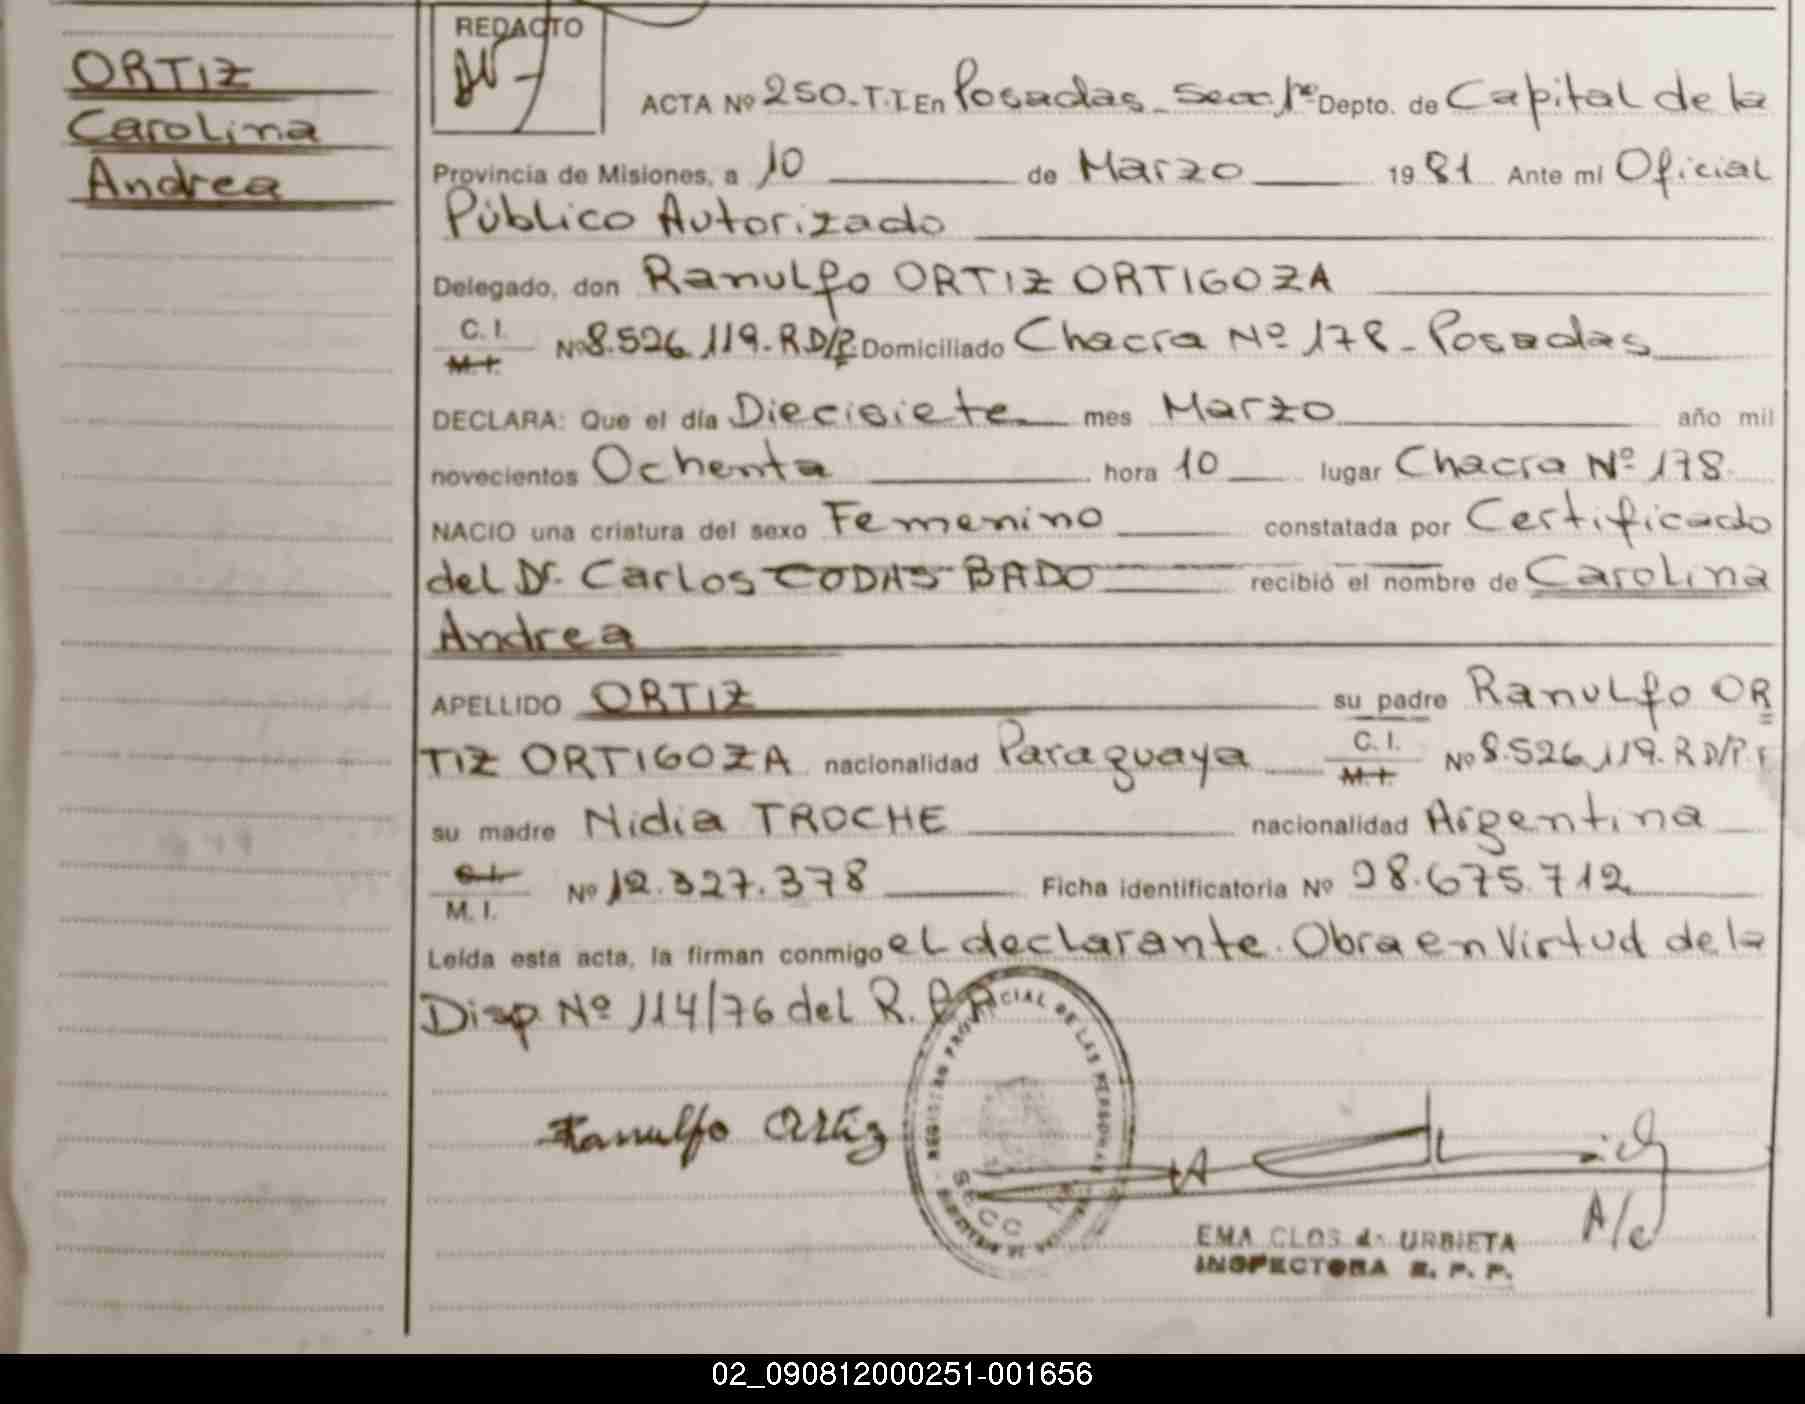 ORTIZ
Carolina
Andrea
REDACTO
ACTA Nº 250-T.I. En Posadas - Secc. 1ra Depto. de Capital de la
Provincia de Misiones, a 10 de Marzo 1981 Ante mi Oficial
Público Autorizado
Delegado, don Ranulfo ORTIZ ORTIGOZA
C. I.
M. I.
Nº 8.526.119-R D/P. Domiciliado Chacra Nº 178 - Posadas
DECLARA: Que el día Diecisiete mes Marzo año mil
novecientos Ochenta hora 10 lugar Chacra Nº 178
NACIO una criatura del sexo Femenino constatada por Certificado
del Dr. Carlos CODAS BADO recibió el nombre de Carolina
Andrea
APELLIDO ORTIZ su padre Ranulfo OR
TIZ ORTIGOZA nacionalidad Paraguaya C. I. M. I. Nº 8.526.119. R D/P.
su madre Nidia TROCHE nacionalidad Argentina
C. I.
M. I.
Nº 12.327.378 Ficha identificatoria Nº 28.675.712
Leída esta acta, la firman conmigo el declarante. Obra en Virtud de la
Disp Nº 114/76 del R.P.P.
REGISTRO PROVINCIAL DE LAS PERSONAS
SECC
Ranulfo Ortiz
A/c
EMA CLOS de URBIETA
INSPECTORA R. P. P.
02_090812000251-001656